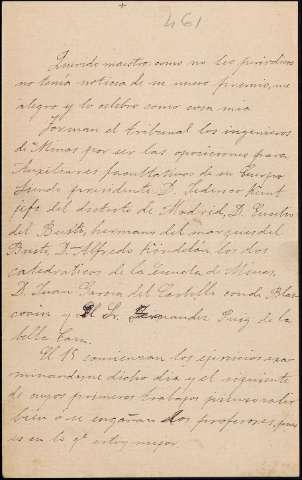 461
Querido maestro: como no leo periodicos
no tenia noticia de su nuevo premio, me
alegro y lo celebro como cosa mia
Forman el tribunal los ingenieros
de Minas por ser las oposiciones para
Auxiliares facultativos de su Cuerpo
siendo presidente D. Federico
jefe del distrito de Madrid, D. Eusebio
del Busto, hermano del marques del
Busto, D. Alfredo Kindelán los dos
catedraticos de la Escuela de Minas,
D. Juan Garcia del Castillo conde Blas
y El Sr. Fernandez Puig de la
bella Cara.
El 15 comienzan los ejercicios exa
minandome dicho dia y el siguiente
de cuyos primeros trabajos
bien ó se engañan los profesores, pues
es en lo q. estoy mejor